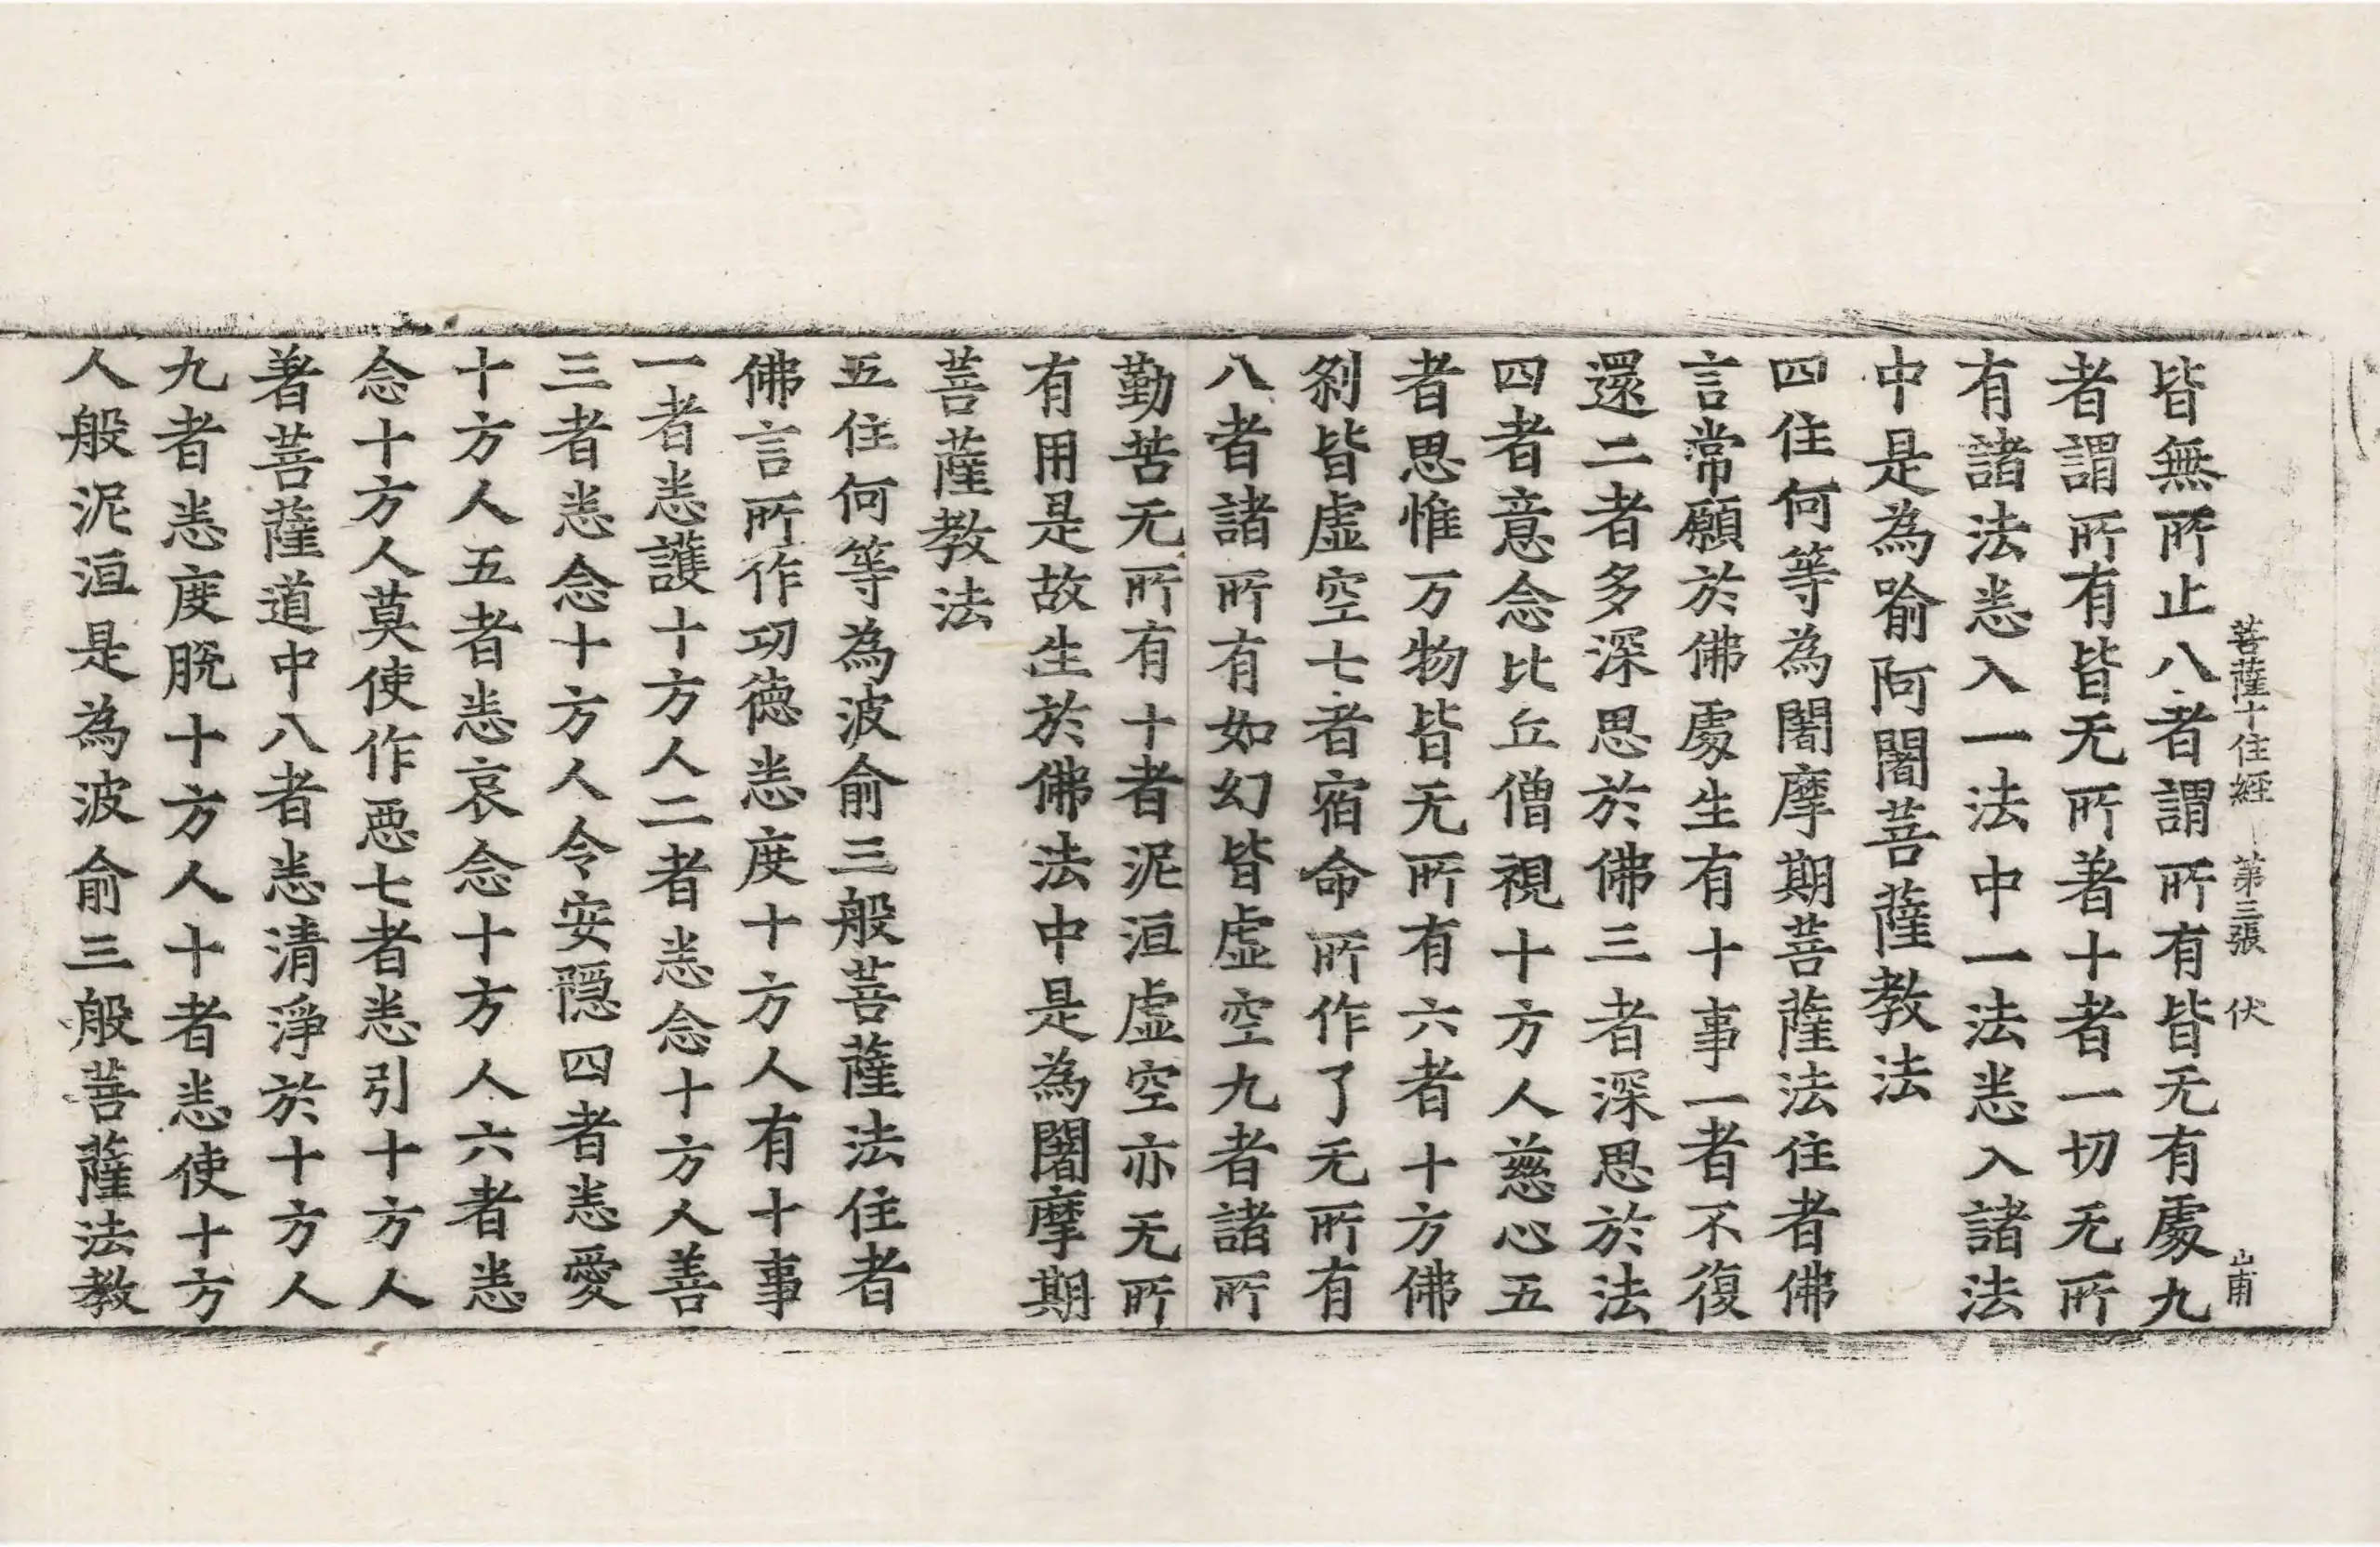 菩薩十住經 第三張 伏 山甫
皆無所止八者謂所有皆无有處九
者謂所有皆无所著十者一切无所
有諸法悉入一法中一法悉入諸法
中是為喻阿闍菩薩教法
四住何等為闍摩期菩薩法住者佛
言常願於佛處生有十事一者不復
還二者多深思於佛三者深思於法
四者意念比丘僧視十方人慈心五
者思惟万物皆无所有六者十方佛
刹皆虛空七者宿命所作了无所有
八者諸所有如幻皆虛空九者諸所
勤苦无所有十者泥洹虛空亦无所
有用是故生於佛法中是為闍摩期
菩薩教法
五住何等為波俞三般菩薩法住者
佛言所作功德悉度十方人有十事
一者悉護十方人二者悉念十方人善
三者悉念十方人令安隱四者悉愛
十方人五者悉哀念十方人六者悉
念十方人莫使作惡七者悉引十方人
著菩薩道中八者悉清淨於十方人
九者悉度脫十方人十者悉使十方
人般泥洹是為波俞三般菩薩法教